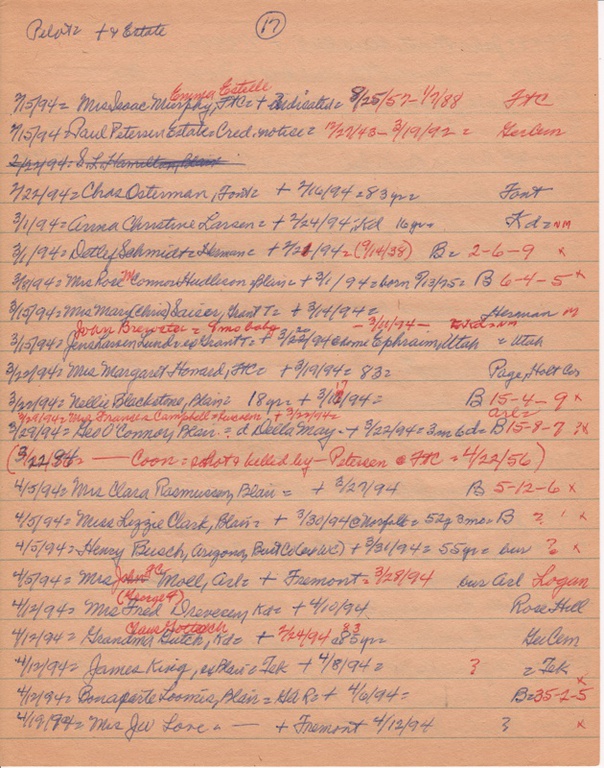 Pilot = + & Estate (17)
Emma Estelle
2/15/94 = Mrs Isaac Murphy, FtC = + = 8/25/57 - 1/7/88 FtC
2/15/94 Paul Petersen Estate = Cred. notice = 12/27/43 - 3/19/92 = GerCem
2/22/94 = S. L. Hamilton, Blair
2/22/94 = Chas Osterman, Font = + 2/16/94 = 83 yr = Font
3/1/94 = Anna Christine Larsen = + 2/24/94, Kd 16 yr = Kd = NM
3/1/94 = Detley Schmidt = Herman = + 2/21/94 = (9/14/38) B = 2-6-9 x
3/8/94 = Mrs Rose McConnor Hudleson, Blair = + 3/1/94 = born 9/13/75 = B 6-4-5 x
3/15/94 = Mrs Mary (Chris) Saiser, Grant T = + 3/14/94 = Herman M
Joan Brewster = 9 mo baby - 3/11/94 - Kd = NM
3/15/94 = Lund = Grant T = + Ephraim, Utah = Utah
3/22/94 = Mrs Margaret Honard, FtC = + 3/19/94 = 83 = Page, Holt Co
3/22/94 = Nellie Blackstone, Blair = 18 yr = + 3/17/94 = B 15-4-9 x
3/29/94 = Mrs Frances Campbell = + 3/22/94 = Arl =
3/29/94 = Geo O'Connor, Blair = d Della May - + 3/22/94 = 3 m 6 d = B 15-8-7 ?x
(3/22/94 = — Coon = shot & killed by - Petersen @ FtC = 4/22/56)
4/5/94 = Mrs Clara Rasmussen, Blair = + 3/27/94 B 5-12-6 x
4/5/94 = Miss Lizzie Clark, Blair = + 3/30/94 @ Norfolk = 52 y 3 mo = B ? x
4/5/94 = Henry Busch, Arizona, + 3/31/94 = 55 yr = bur ? x
4/5/94 = Mrs John C Moell, Arl = + Fremont = 3/28/94 bur Arl Logan
(George G)
4/12/94 = Mrs Fred Drevecen, Kd = + 4/10/94 Rose Hill
Claus Gottsch
4/12/94 = Grandma Gutch, Kd = + 2/24/94 83 85 yr = GerCem
4/12/94 = James King, ex Blair = Tek + 4/8/94 = ? = Tek x
4/12/94 = Bonaparte Loomis, Blair = GAR = + 4/6/94 = B = 35-2-5 x
4/19/94 = Mrs Jes Love = — + Fremont 4/12/94 ? x